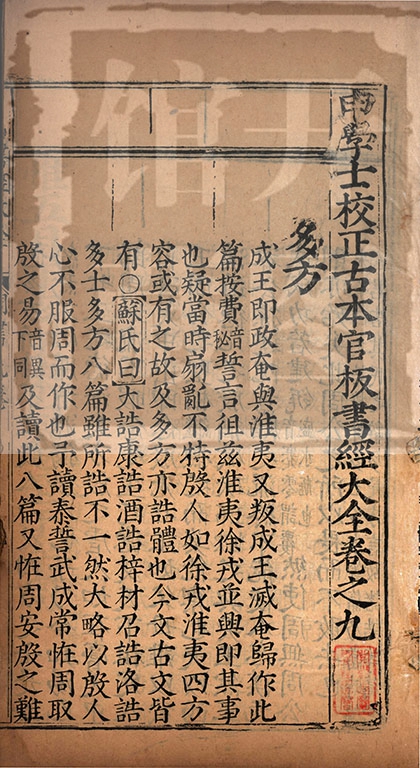 申學士校正古本官板書經大全卷之九
多方
成王即政奄與淮夷又叛成王滅奄歸作此
篇按費音秘誓言徂茲淮夷徐戎並興即其事
也疑當時扇亂不特殷人如徐戎淮夷四方
容或有之故及多方亦誥體也今文古文皆
有○蘇氏曰大誥康誥酒誥梓材召誥洛誥
多士多方八篇雖所誥不一然大略以殷人
心不服周而作也予讀泰誓武成常恠周取
殷之易音異下同及讀此八篇又恠周安殷之難